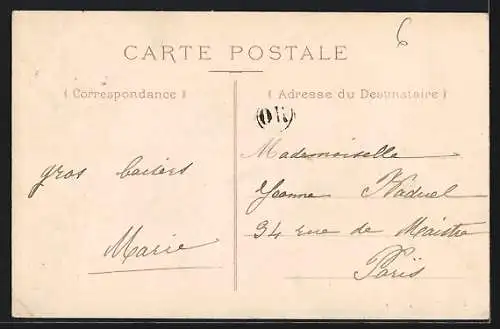 6
CARTE POSTALE
( Correspondance )
( Adresse du Destinataire )
gros baisers
Marie
Mademoiselle
Yvonne
34 rue de Maistre
Paris